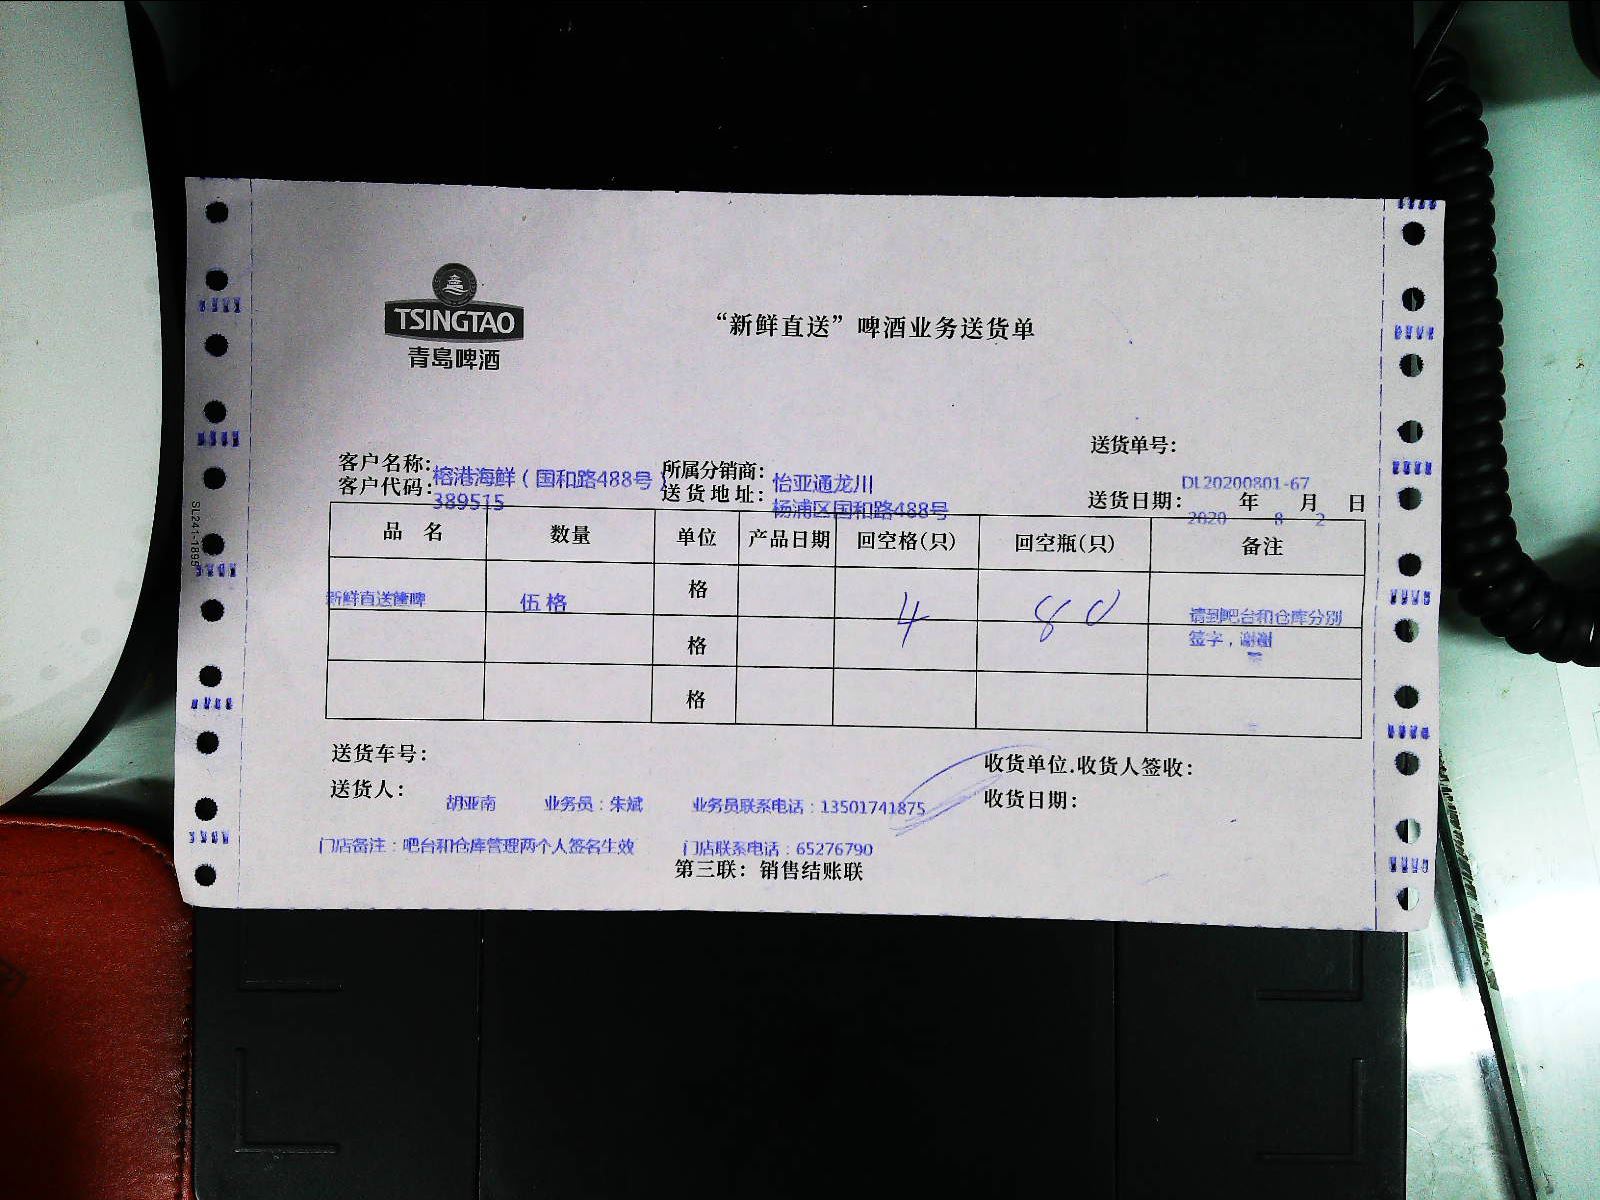 TSINGTAO
青岛啤酒
“新鲜直送”啤酒业务送货单
送货单号：
DL20200801-67
客户名称：榕港海鲜（国和路488号）
所属分销商：怡亚通龙川
客户代码：389515
送货地址：杨浦区国和路488号
送货日期：2020 年 8 月 2 日
品 名 数量 单位 产品日期 回空格(只) 回空瓶(只) 备注
新鲜直送 伍格 格 4 80 请到吧台和仓库分别
签字，谢谢
格
格
送货车号：
收货单位.收货人签收：
送货人：胡亚南 业务员：朱斌 业务员联系电话：13501741875
收货日期：
门店备注：吧台和仓库管理两个人签名生效 门店联系电话：65276790
第三联：销售结账联